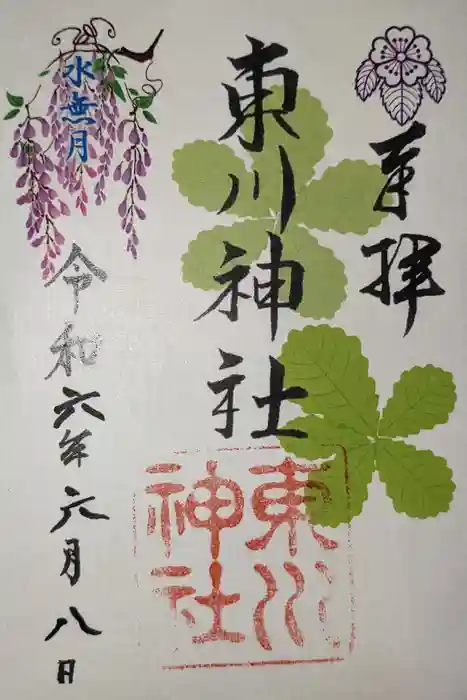 奉拝
東川神社
東川
神社
水無月
令和六年六月八日